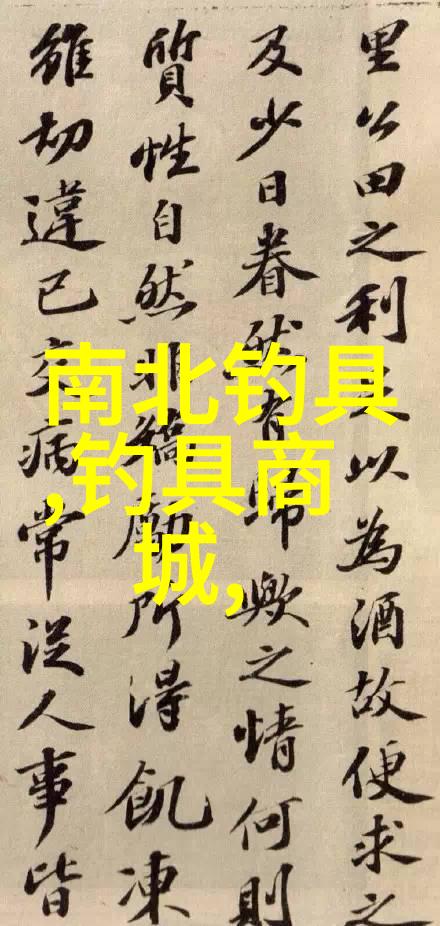 里公田之利以為酒故便求之
及少日眷然有歸歟之情何則
質性自然非矯勵所得飢凍
雖切違已交病常從人事皆
南北钓具
,钓具商
城,